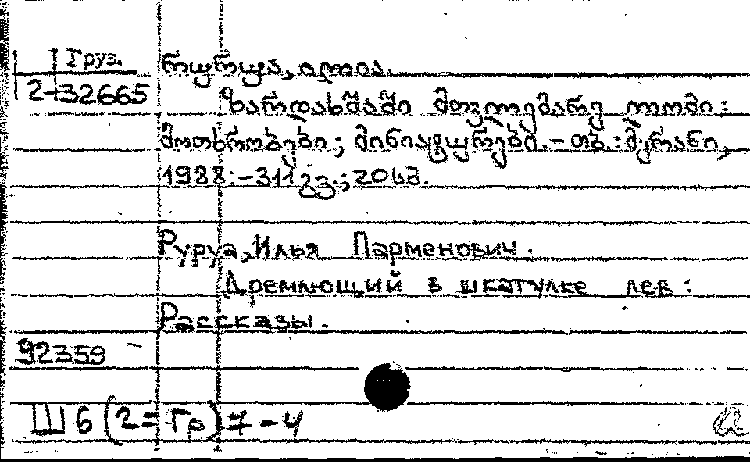 Груз. რურუა, ილია.
2-32665 ზარდახშაში მთვლემარე ლომი:
მოთხრობები; მინიატურები. - თბ.: მერანი,
1988. - 311 გვ.; 20 სმ.
Руруа, Илья Парменович.
Дремлющий в шкатулке лев:
Рассказы.
92359
Ш6(2=Гр)7-4